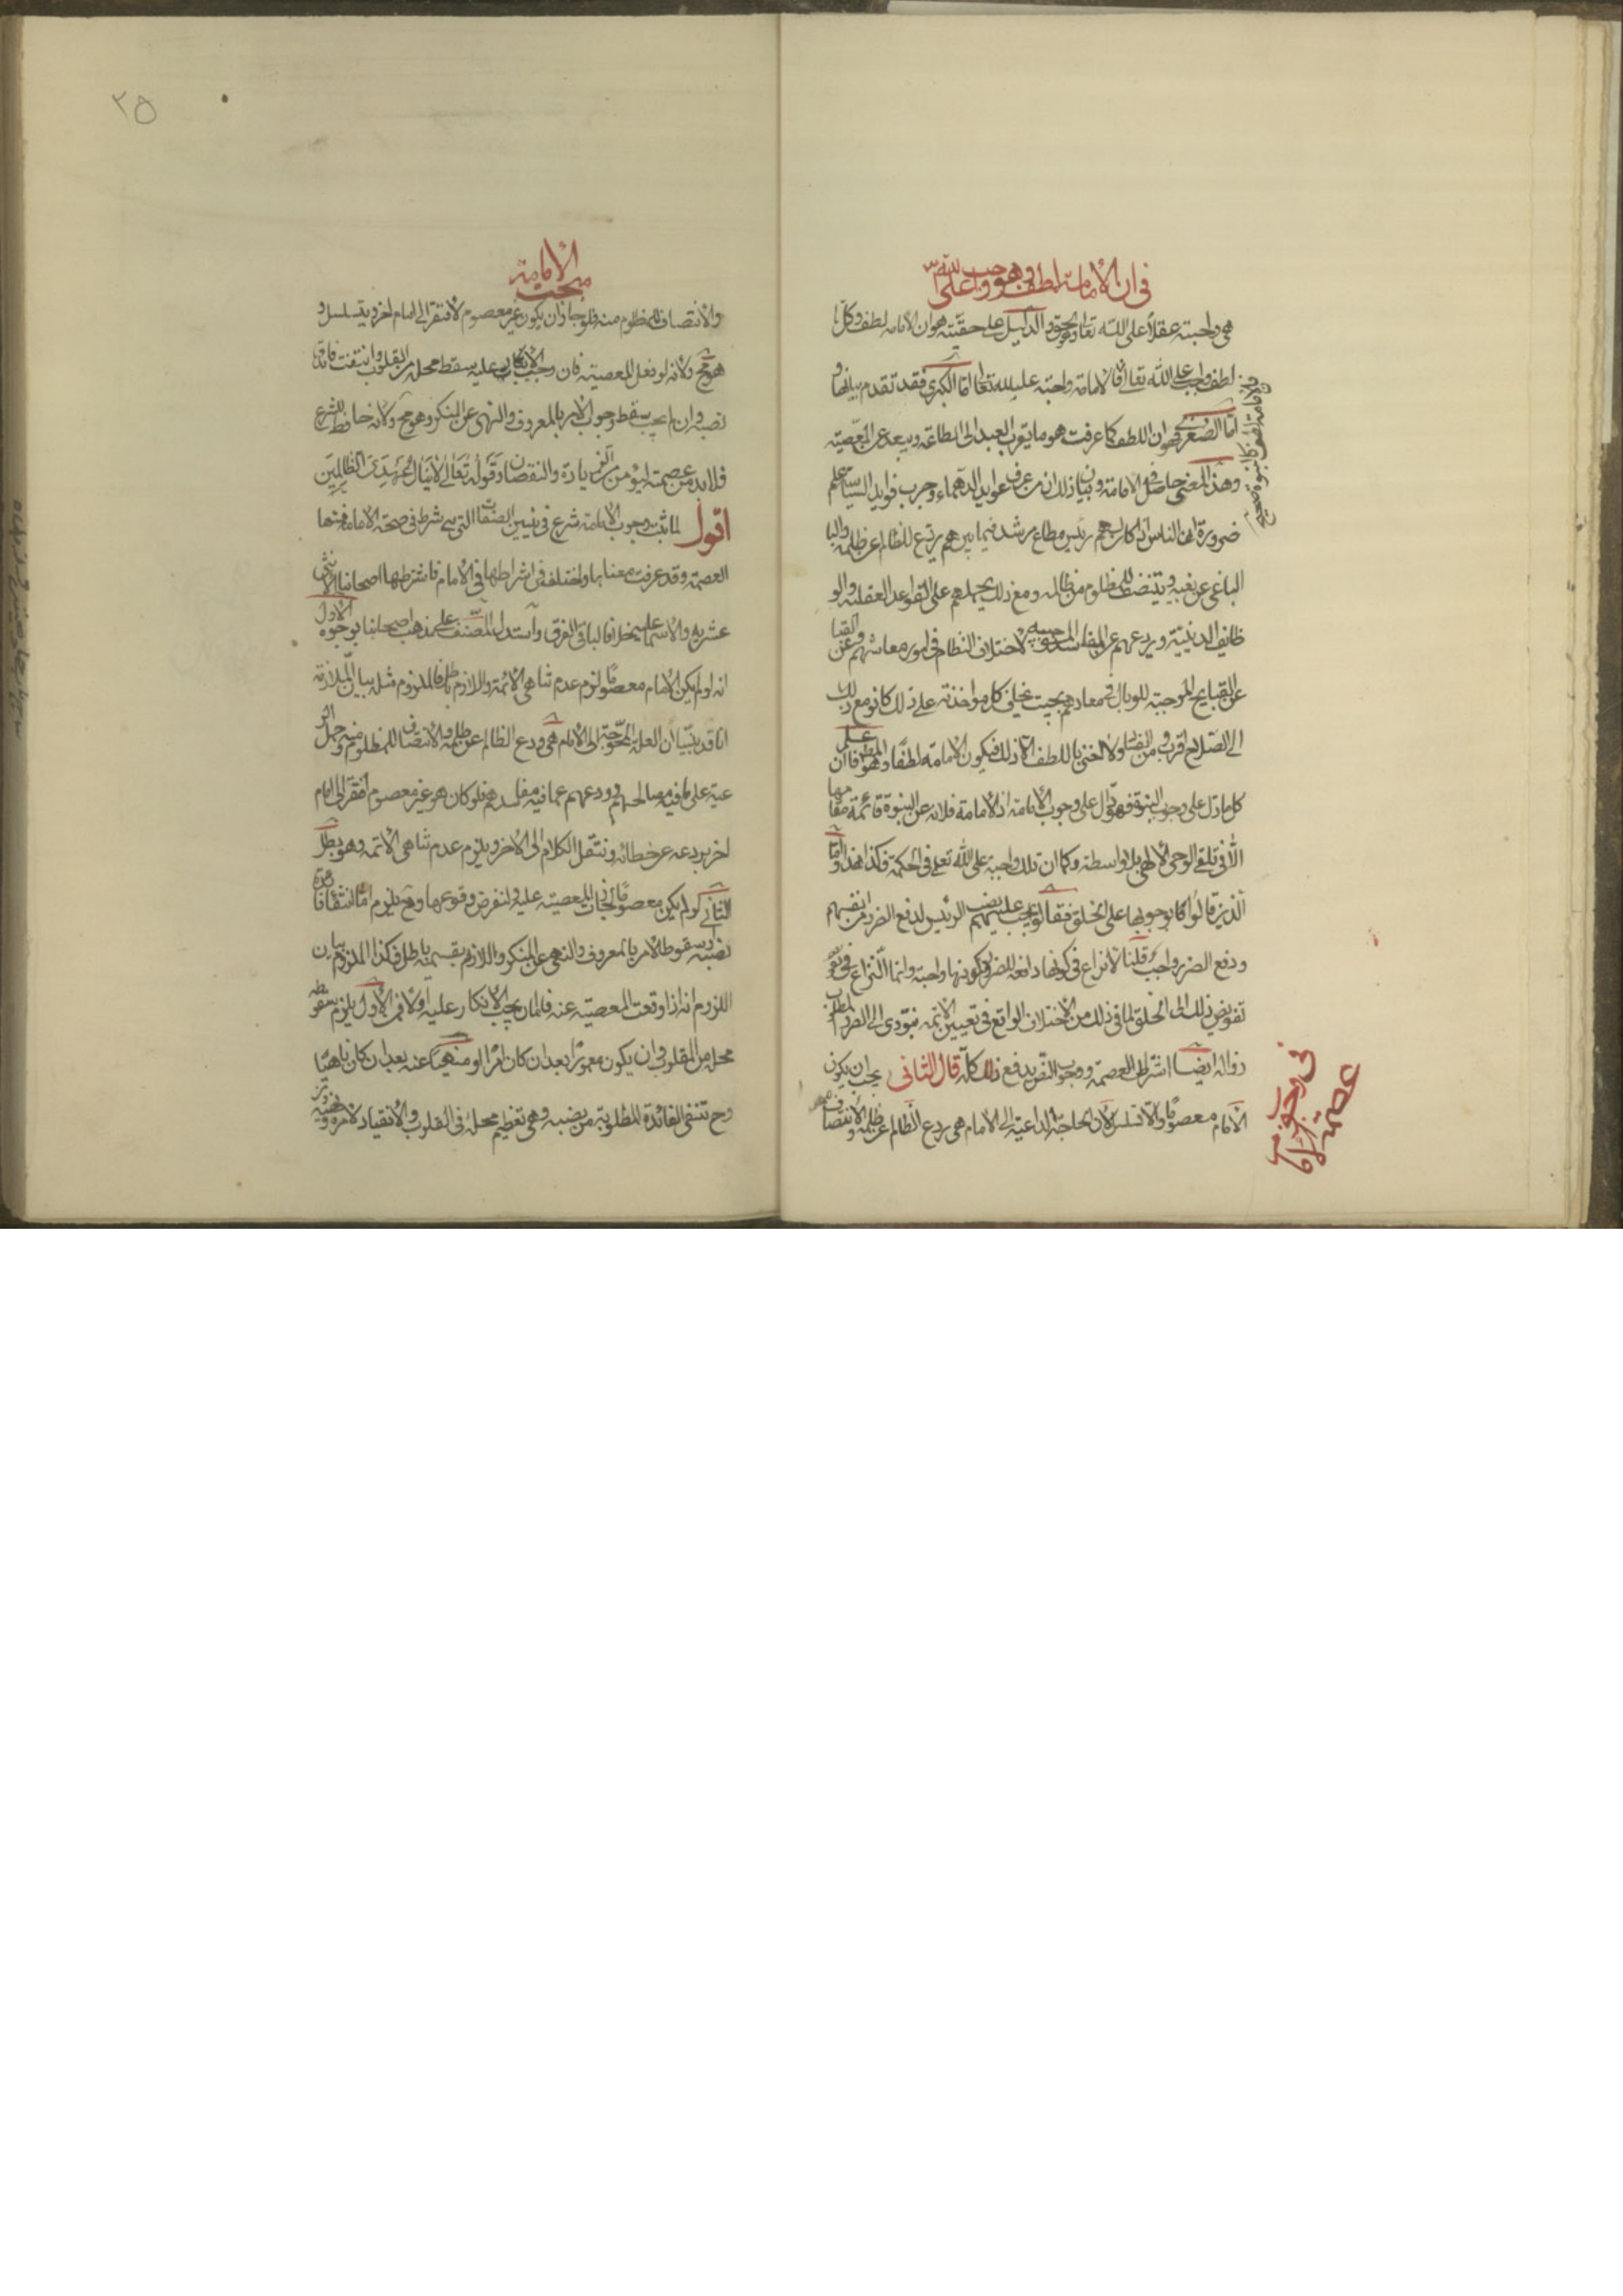 في ان الامامة لطف وهو واجب على الله تعالى
هي واجبة عقلا على الله تعالى وهو الحق والدليل على حقيته هو ان الامامة لطف وكل
لطف واجب على الله تعالى فالامامة واجبة على الله تعالى اما الكبرى فقد تقدم بيانها و
اما الصغرى فهو ان اللطف كما عرفت هو ما يقرب العبد الى الطاعة ويبعد عن المعصية
وهذا المعنى حاصل في الامامة وبيان ذلك ان من عرف عوايد الدهماء وجرب فوايد السياسة علم
ضرورة ان الناس اذا كان لهم رئيس مطاع مرشد فيما بينهم يردع الظالم عن ظلمه والبا
الباغي عن بغيه وينتصف للمظلوم من ظالمه ومع ذلك يحملهم على القواعد العقلية والو
ظايف الدينية ويردعهم عن المفاسد الموجبة لاختلاف النظام في امور معاشهم وعن القبا
عن القبايح الموجبة للوبال في معادهم بحيث يخاف كل مؤاخذته على ذلك كانوا مع ذلك
الى الصلاح اقرب ومن الفساد ابعد ولا نعني باللطف الا ذلك فيكون الامامة لطفا وهو المطلوب واعلم ان
كل ما دل على وجوب النبوة فهو دال على وجوب الامامة اذ الامامة خلافة عن النبوة قائمة مقامها
الا في تلقي الوحي الالهي بلا واسطة وكما ان تلك واجبة على الله تعالى في الحكمة فكذا هذه واما
الذين قالوا بوجوبها على الخلق فقالوا يجب عليهم نصب الرئيس لدفع الضرر من انفسهم
ودفع الضرر واجب قلنا لا نزاع في كونها دافعة للضرر وكونها واجبة وانما النزاع في تفو
تفويض ذلك الى الخلق لما في ذلك من الاختلاف الواقع في تعيين الائمة فيؤدي الى الضرر المطلوب
زواله ايضا اشتراط العصمة ووجوب النص يدفع ذلك كله قال الثاني يجب ان يكون
الامام معصوما والا تسلسل لان الحاجة الداعية الى الامام هي ردع الظالم عن ظلمه والانتصاف
في وجوب عصمة الامام
مبحث الامامة
والانتصاف للمظلوم منه فلو جاز ان يكون غير معصوم لافتقر الى امام اخر ويتسلسل و
هو مح ولانه لو فعل المعصية فان وجب الانكار عليه سقط محله من القلوب وانتفت فائدة
نصبه وان لم يجب سقط وجوب الامر بالمعروف والنهي عن المنكر وهو مح ولانه حافظ للشرع
فلا بد من عصمته ليؤمن من الزيادة والنقصان وقوله تعالى لا ينال عهدي الظالمين
اقول لما ثبت وجوب الامامة شرع في تبيين الصفات التي هي شرط في صحة الامامة فمنها
العصمة وقد عرفت معناها واختلف في اشتراطها في الامام فاشترطها اصحابنا الاثنى
عشرية والاسماعيلية خلافا لباقي الفرق واستدل المصنف على مذهب اصحابنا بوجوه الاول
انه لو لم يكن الامام معصوما لزم عدم تناهي الائمة واللازم باطل فالملزوم مثله بيان الملازمة
انا قد بينا ان العلة المحوجة الى الامام هي ردع الظالم عن ظلمه والانتصاف للمظلوم منه وحمل الر
عية على ما فيه مصالحهم وردعهم عما فيه مفاسدهم فلو كان هو غير معصوم افتقر الى امام
اخر يردعه عن خطائه وننقل الكلام الى الاخر ويلزم عدم تناهي الائمة وهو باطل
الثاني لو لم يكن معصوما لجازت المعصية عليه ولنفرض وقوعها وح يلزم اما انتفاء فائدة
نصبه او سقوط الامر بالمعروف والنهي عن المنكر واللازم بقسميه باطل فكذا الملزوم بيان
اللزوم انه اذا وقعت المعصية عنه فاما ان يجب الانكار عليه او لا فمن الاول يلزم سقوط
محله من القلوب وان يكون مامورا بعد ان كان امرا او منهيا عنه بعد ان كان ناهيا
وح تنتفي الفائدة المطلوبة من نصبه وهي تعظيم محله في القلوب والانقياد لامره ونهيه
٢٥